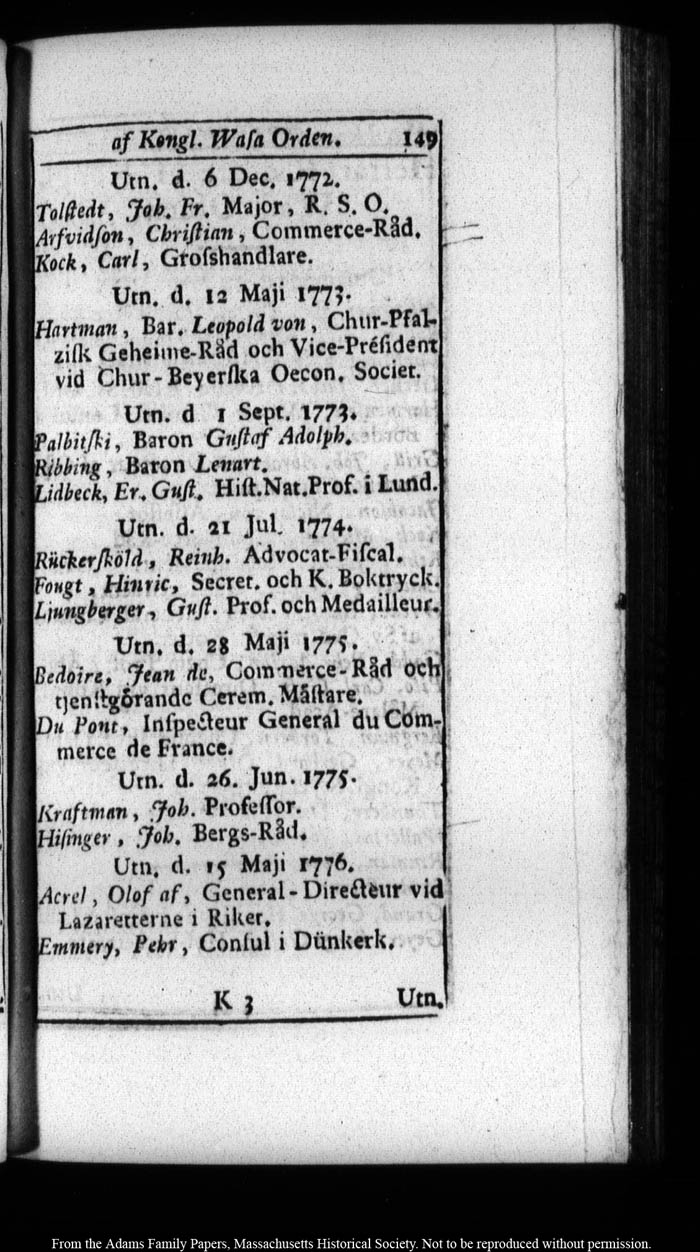 af Kongl. Waſa Orden. 149
Utn. d. 6 Dec. 1772.
Tolſtedt, Joh. Fr. Major, R. S. O.
Arfvidſon, Chriſtian, Commerce-Råd.
Kock, Carl, Groſshandlare.
Utn. d. 12 Maji 1773.
Hartman, Bar. Leopold von, Chur-Pfal-
ziſk Geheime-Råd och Vice-Préſident
vid Chur-Beyerſka Oecon. Societ.
Utn. d 1 Sept. 1773.
Palbitſki, Baron Guſtaf Adolph.
Ribbing, Baron Lenart.
Lidbeck, Er. Guſt. Hiſt. Nat. Prof. i Lund.
Utn. d. 21 Jul. 1774.
Rückerſköld, Reinh. Advocat-Fiſcal.
Fougt, Hinric, Secret. och K. Boktryck.
Ljungberger, Guſt. Prof. och Medailleur.
Utn. d. 28 Maji 1775.
Bedoire, Jean de, Commerce-Råd och
tjenſtgörande Cerem. Måſtare.
Du Pont, Inſpecteur General du Com-
merce de France.
Utn. d. 26. Jun. 1775.
Kraftman, Joh. Profeſſor.
Hiſinger, Joh. Bergs-Råd.
Utn. d. 15 Maji 1776.
Acrel, Olof af, General-Directeur vid
Lazaretterne i Riket.
Emmery, Pehr, Conſul i Dünkerk.
K 3 Utn.
From the Adams Family Papers, Massachusetts Historical Society. Not to be reproduced without permission.